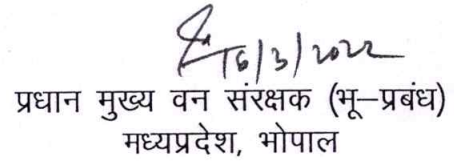 16/3/2022
प्रधान मुख्य वन संरक्षक (भू–प्रबंध)
मध्यप्रदेश, भोपाल